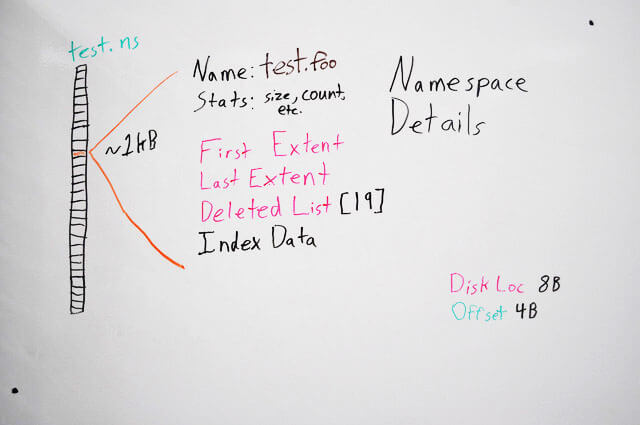 test.ns
~1kB
Name: test.foo
Stats: size, count,
etc.
First Extent
Last Extent
Deleted List [19]
Index Data
Namespace
Details
DiskLoc 8B
Offset 4B